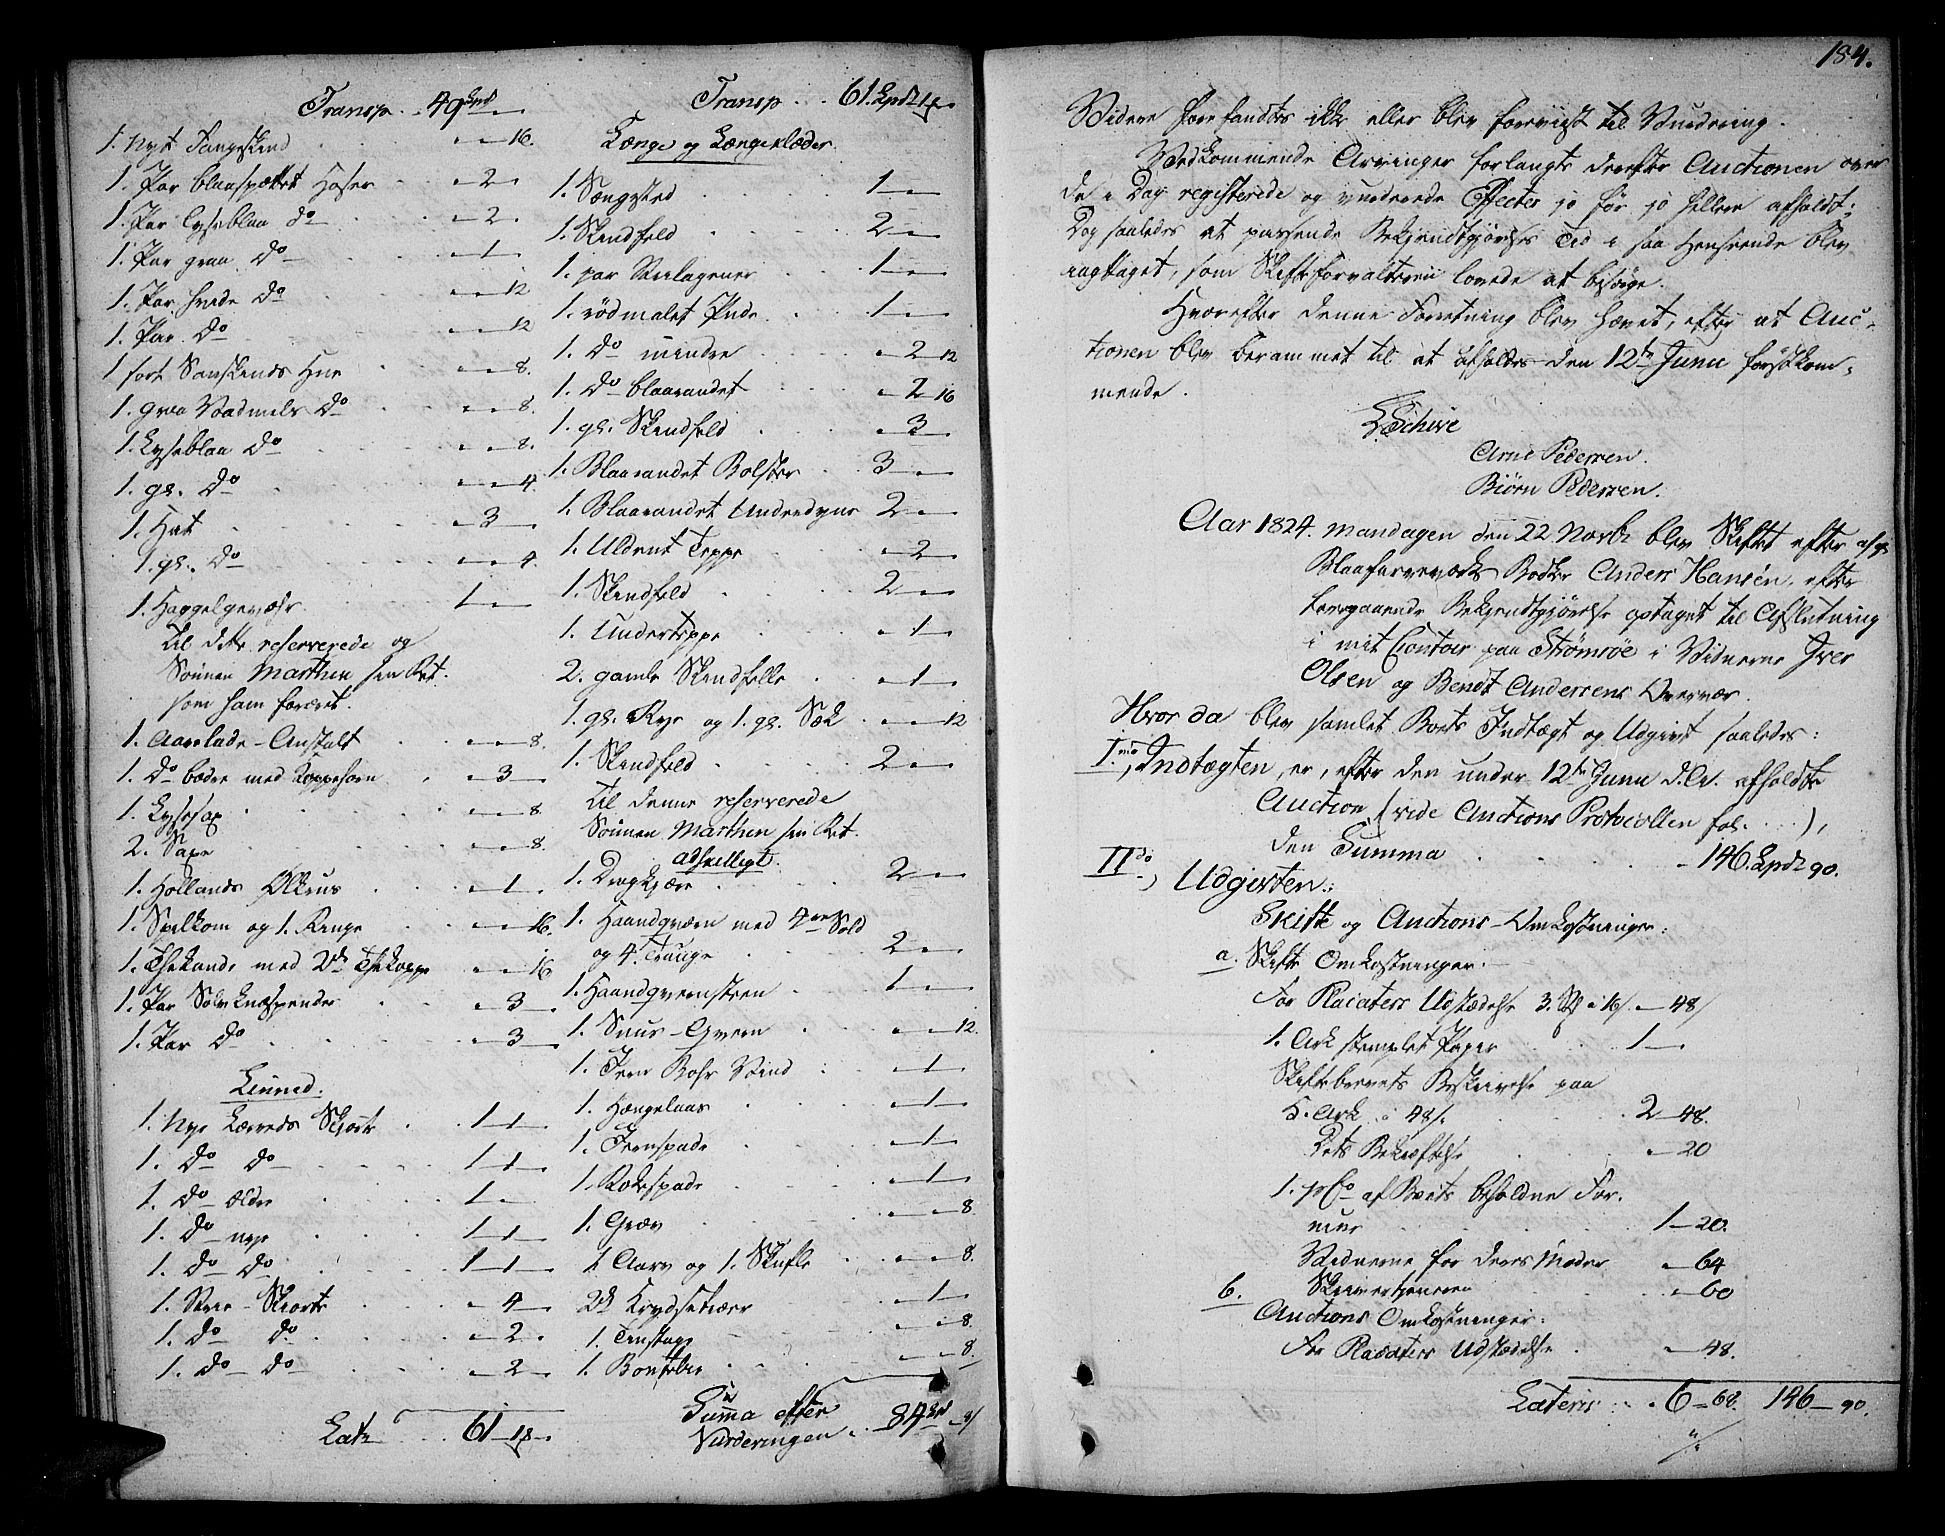 Transp. . 49 Spd
1. Nyt Fangeskind . . - - 16.
1. Par blaaspættet Hoser . . - 2 -
1. Par lyseblaa do . . - 2 -
1. Par graa do . . - 1 -
1. Par hvide do . . - - 12
1. Par do . . - - 12
1 sort Sauskinds Hue . . - - 8.
1. graa Vadmels do . . - - 8.
1. Lyseblaa do . . - - 8.
1. gl. do . . - - 4.
1. Hat . . - 3 -
1. gl. do . . - - 4.
1. Haggelgevæhr . . 1 - -
til dette reserverede og
Sønnen Marthin sin Ret.
som ham foræret.
1. Aarelade-Anstalt . . - - 8.
1. do bedre med Koppehorn . - 3 -
1. Lysesax . . - - 8
2. Saxe . . - - 8.
1. Hollands Ølkrus . . - 1 -
1. Spelkom og 1. Ringe . . - - 16.
1. Thekande med 2de Thekoppe - - 16
1. Par Sølv Knæspender . . - 3 -
1. Par do . . - 3 -
Linned.
1. Nye Lærreds Skjorte . 1 - 1 -
1. do do . . 1 - 1 -
1. do ældre . . 1 - -
1. do nye . . 1 - 1 -
1. do do . . 1 - 1 -
1. Strie-Skiorte . . - 4 -
1. do do . . - 2 -
1. do do . . - 2 -
Lats . . 61 - 1 8 -
Transp . . 61. Spd 1 8
Senge og Sengeklæder
1. Sængsted . . 1 - -
1. Skindfeld . . 2 - -
1. par Strielagener . . 1 - -
1. rødmalet Pude . . 1 - -
1. do mindre . . - 2 12
1. do blaarandet . . - 2 16
1. gl. Skindfeld . . - 3 -
1. Blaarandet Bolster . . 3 - -
1. Blaarandet Underdyne 2 - -
1. Uldent Teppe . . - 2 -
1. Skindfeld . . 2 - -
1. Underteppe . . - 1 -
2. gamle Skindfelle . . - 1 -
1. gl. Rye og 1. gl. Sæk . - - 12
1. Skindfeld . . 2 - -
til denne reserverede
Sønnen Marthin sin Ret.
adskilligt.
1. Dragkjære . . 2 - -
1. Haandqværn med 4re Sold
og 4. Trauge . . 2 - -
1. Haandqværnsteen . . 1 - -
1. Snus-Qvern . . - - 12.
1. Jern Bohr Vind . . - 1 -
1. Hængelaas . . - 1 -
1. Jernspade . . - 1 -
1. Rokespade . . - 1 -
1. Græv . . - - 8
1. Aarv og 1. Skufle . . - - 8.
2de Krydsetøier . . - 1 -
1. Tenstage . . - - 8.
1. . . - - 8.
Summa efter
Vurderingen . - 84 Spd - 8/
184.
Videre forefandtes ikke eller blev foreviist til Vurdering.
Vedkommende Arvinger forlangte derefter Auctionen over
de i Dag registerede og vurderede Effecter jo før jo hellere afholdt;
Dog saaledes at passende Bekjendtgjørelses Tid i saa Henseende blev
iagttaget, som Skifteforvalteren lovede at besørge.
Hvorefter denne Forretning blev hævet, efter at Auc-
tionen blev berammet til at afholdes den 12te Junii førstkom-
mende.
Schive
Arne Pedersen.
Biørn Pedersen.
Aar 1824. Mandagen den 22 Novbr blev Skiftet efter afg.
Blaafarveværks Bødker Anders Hansen, efter
foregaaende Bekjendtgjørelse optaget til Afslutning
i mit Contoir paa Strømsøe i Vidnerne Iver
Olsen og Bendt Andersens Overvær.
Hvor da blev samlet Boets Indtægt og Udgivt saaledes:
Imo, Indtægten, er, efter den under 12te Junii d. A. afholdte
Auction (vide Auctions Protocollen fol. . . ),
den Summa . . - 146. Spd 90.
IIdo, Udgivten:
Skifte og Auctions-Omkostninger:
a. Skifte Omkostninger. -
For Placaters Udstædelse 3. St. a 16/. - 48/
1. Ark stemplet Papir . 1 -
Skiftebrevets Beskrivelse paa
5. Ark a 48/. . . 2 - 48.
Dets Bekræftelse . . - 20
1. pCo af Boets beholdne For-
mue . . 1 - 20.
Vidnerne for deres Møder - 64
Skiversteren . - 60
b. Auctions Omkostninger:
For Placaters Udstædelse . - 48.
Lateris . . 6 - 68. 146 - 90.